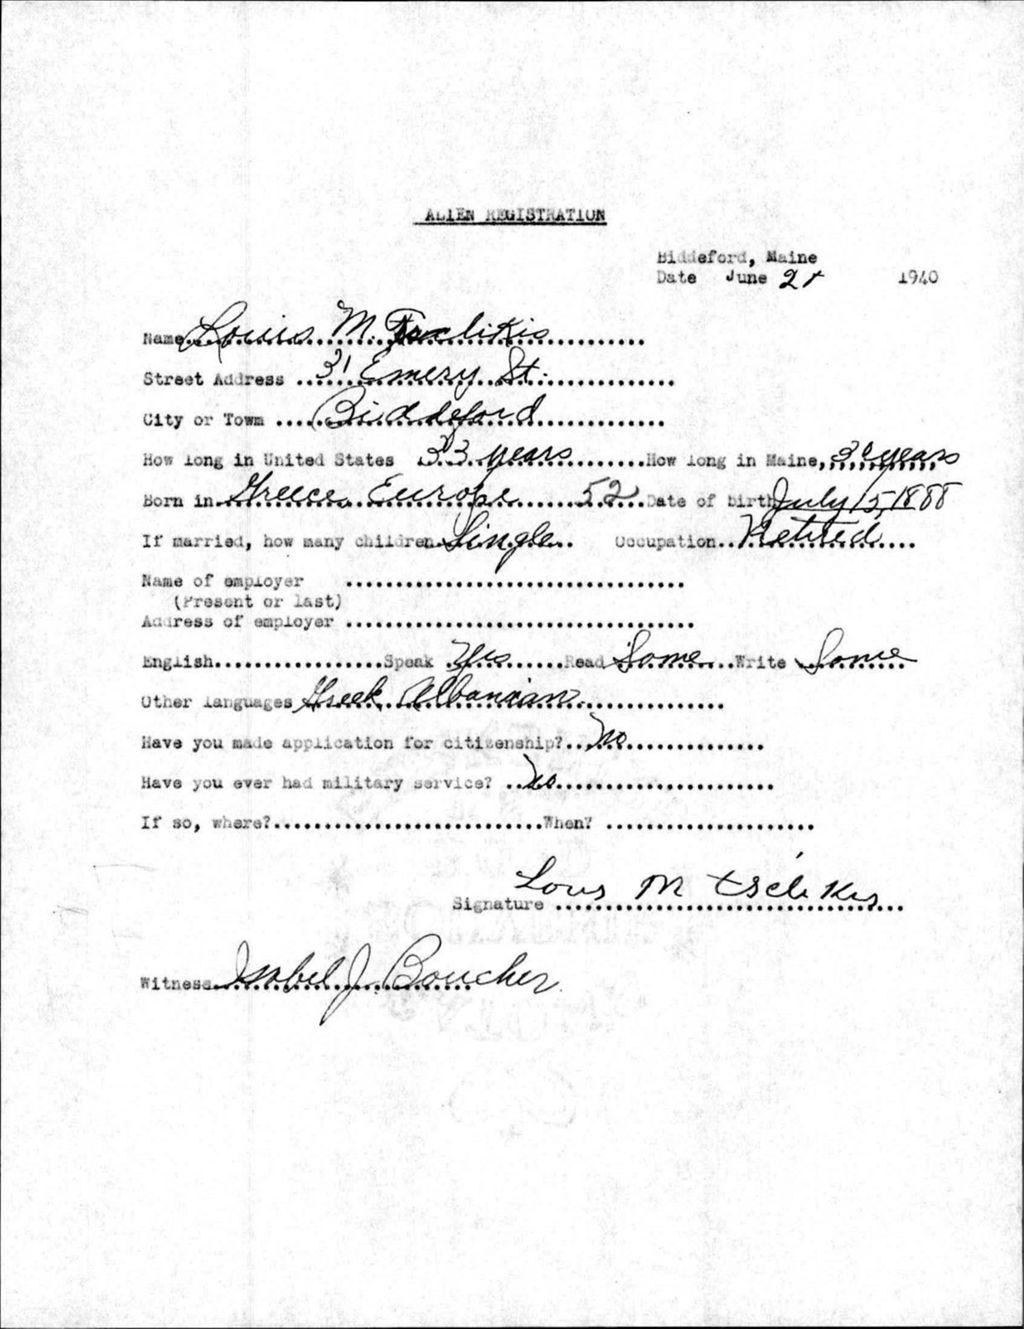 ALIEN REGISTRATION
Biddeford, Maine
Date June 1940
Name Louis M.
Street Address 31 Emery St.
City or Town Biddeford
How long in United States 33 years How long in Maine, 30 years
Born in Greece, Europe 52 Date of birth July 15, 1888
If married, how many children Single Occupation Retired
Name of employer
(Present or last)
Address of employer
English Speak Yes Read Some Write Some
Other languages Greek, Albanian
Have you made application for citizenship? No
Have you ever had military service? No
If so, where? When?
Signature Louis M Tselikis
Witness Isobel J. Boucher